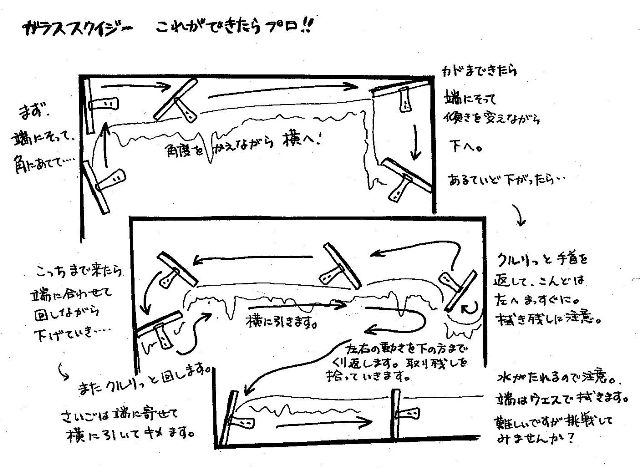 ガラススクイジー これができたらプロ!!
まず、
端にそって、
角にあてて‥‥
角度をかえながら 横へ!
カドまできたら
端にそって
傾きを変えながら
下へ。
あるていど下がったら‥
クルリっと手首を
返して、こんどは
左へまっすぐに。
拭き残しに注意。
こっちまで来たら
端に合わせて
回しながら
下げていき‥‥
横に引きます。
またクルリっと回します。
左右の動きを下の方まで
くり返します。取り残しを
拾っていきます。
さいごは端に寄せて
横に引いてキメます。
水がたれるので注意。
端はウエスで拭きます。
難しいですが挑戦して
みませんか?